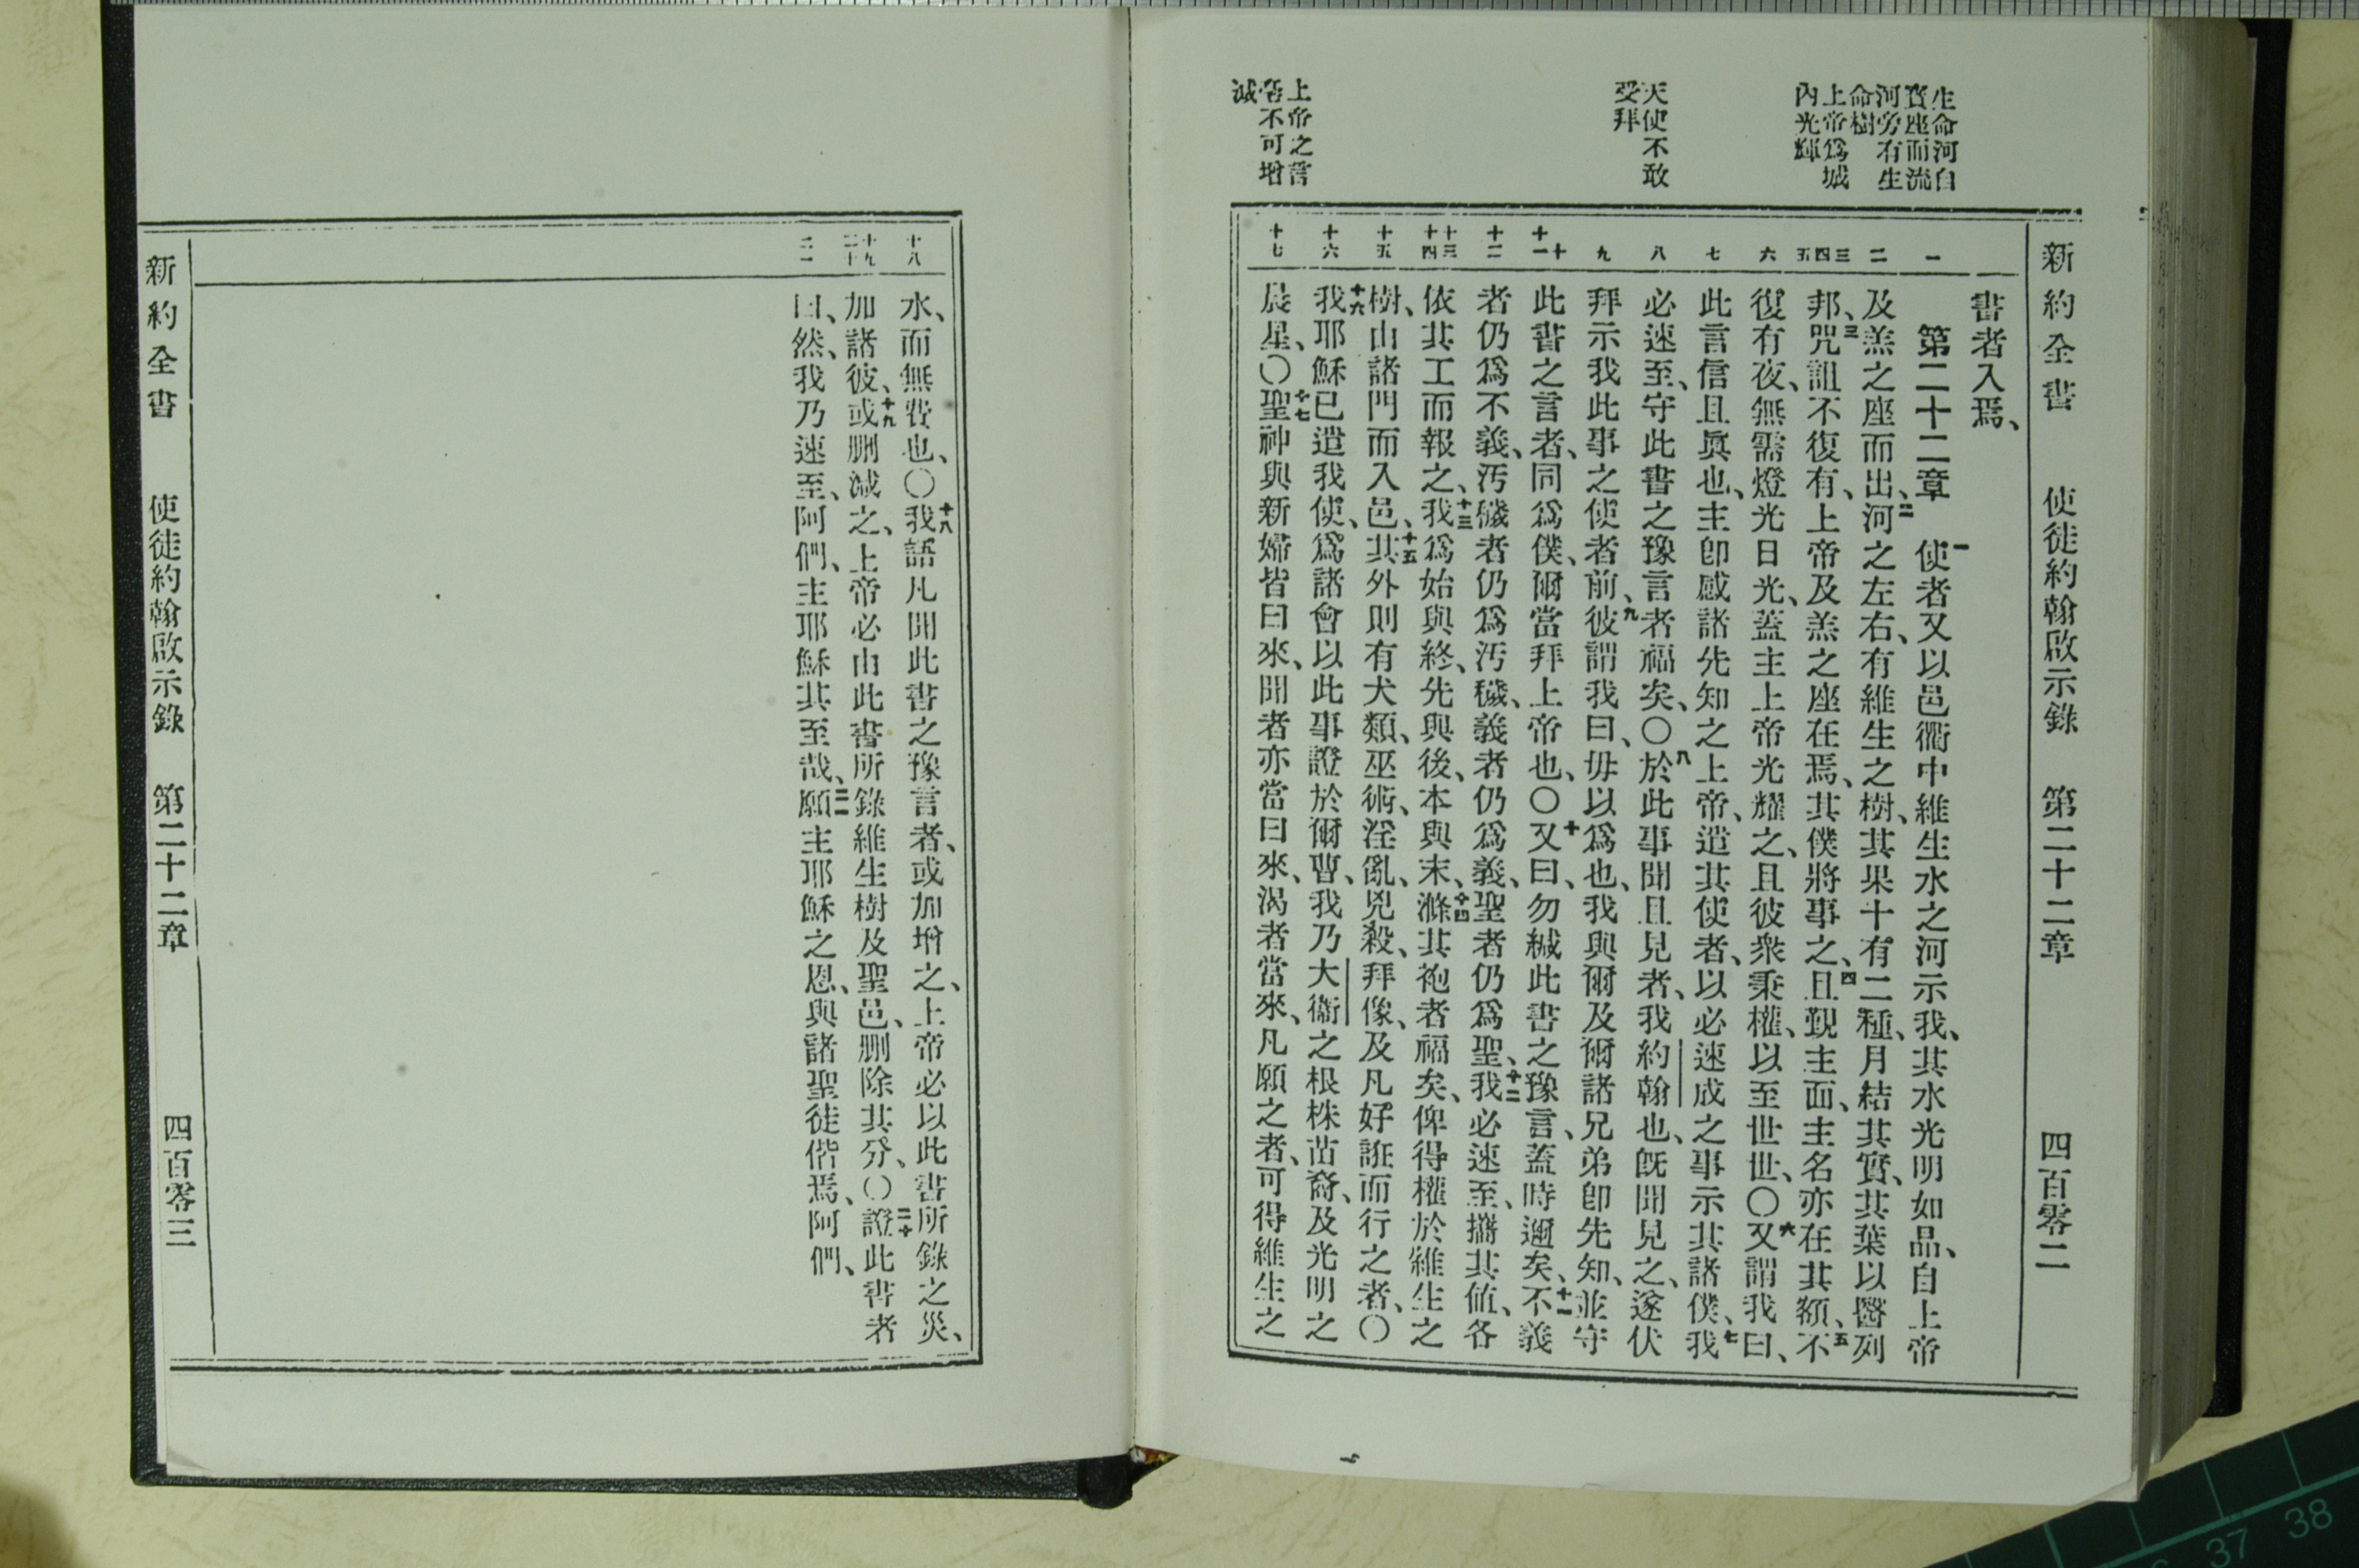 新約全書　使徒約翰啟示錄　第二十二章　四百零二
生命河自
寶座而流
河旁有生
命樹
上帝爲城
內光輝
天使不敢
受拜
上帝之言
不可增
減
一
二
三
四
五
六
七
八
九
十
十一
十二
十三
十四
十五
十六
十七
書者入焉、
第二十二章　一使者又以邑衢中維生水之河示我、其水光明如晶、自上帝
及羔之座而出、二河之左右、有維生之樹、其果十有二種、月結其實、其葉以醫列
邦、三咒詛不復有、上帝及羔之座在焉、其僕將事之、四且覲主面、主名亦在其額、五不
復有夜、無需燈光日光、蓋主上帝光耀之、且彼衆秉權、以至世世、〇六又謂我曰、
此言信且眞也、主卽感諸先知之上帝、遣其使者、以必速成之事示其諸僕、七我
必速至、守此書之豫言者福矣、〇八於此事聞且見者、我約翰也、旣聞見之、遂伏
拜示我此事之使者前、九彼謂我曰、毋以爲也、我與爾及爾諸兄弟卽先知、並守
此書之言者、同爲僕、爾當拜上帝也、〇十又曰、勿緘此書之豫言、蓋時邇矣、十一不義
者仍爲不義、汚穢者仍爲汚穢、義者仍爲義、聖者仍爲聖、十二我必速至、攜其値、各
依其工而報之、十三我爲始與終、先與後、本與末、十四滌其袍者福矣、俾得權於維生之
樹、由諸門而入邑、十五其外則有犬類、巫術、淫亂、兇殺、拜像、及凡好誑而行之者、〇
十六我耶穌已遣我使、爲諸會以此事證於爾曹、我乃大衞之根株苗裔、及光明之
晨星、〇十七聖神與新婦皆曰來、聞者亦當曰來、渴者當來、凡願之者、可得維生之
十八
十九
二十
二一
水、而無費也、〇十八我語凡聞此書之豫言者、或加增之、上帝必以此書所錄之災、
加諸彼、十九或刪減之、上帝必由此書所錄維生樹及聖邑、刪除其分、〇二十證此書者
曰、然、我乃速至、阿們、主耶穌其至哉、二一願主耶穌之恩、與諸聖徒偕焉、阿們、
新約全書　使徒約翰啟示錄　第二十二章　四百零三
37
38